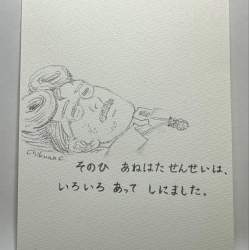 そのひ　あねはた せんせいは、
いろいろ あって しにました。